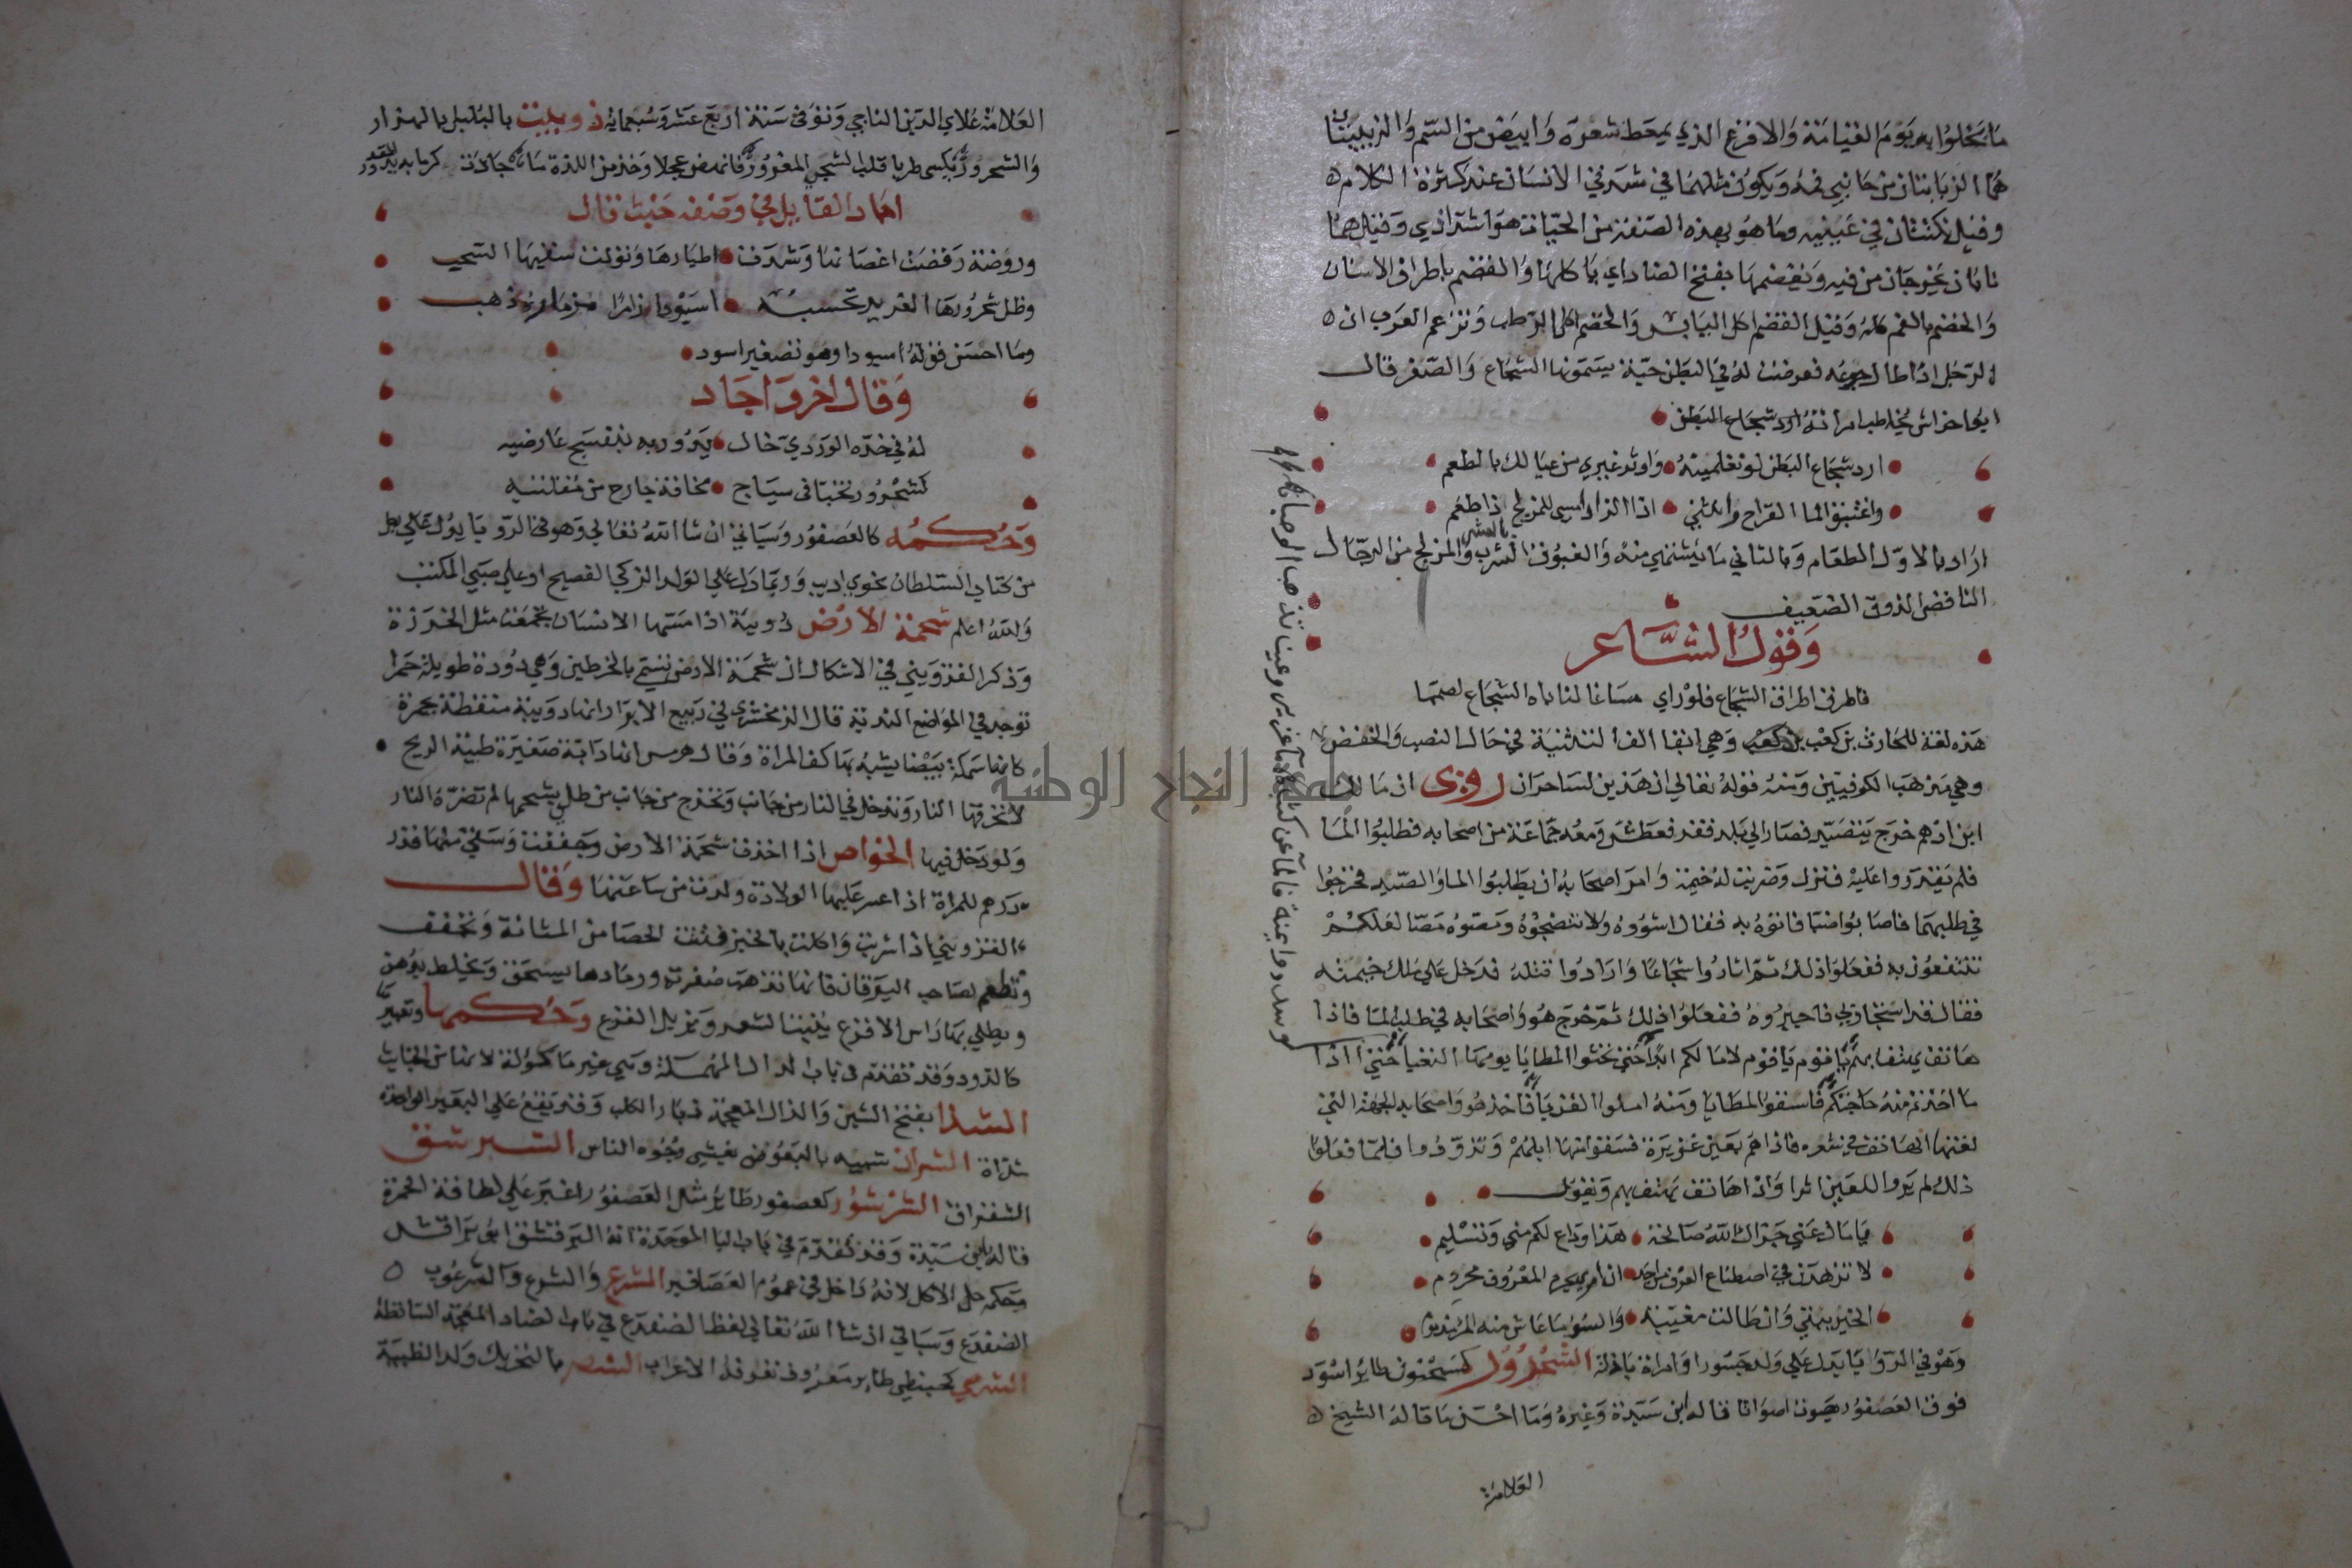 ما بخلوا به يوم القيامة والاقرع الذي يمعط شعره وابيض من السم والزبيبتان
هما الزبابتان من جانبي فمه ويكون مثلهما في شدقي الانسان عند كثرة الكلام
وقيل نكتتان في عينيه وما هو بهذه الصفة من الحيات هو اشد اذي وقيل هما
نابان يخرجان من فيه ويقضمها بفتح الضاد اي ياكلها والقضم باطراف الاسنان
والخضم بالفم كله وقيل القضم اكل اليابس والخضم اكل الرطب وتزعم العرب ان
الرجل اذا طال جوعه تعرضت له في البطن حية يسمونها الشجاع والصفر قال
ابو خراش يخاطب امراته ارد شجاع البطن
ارد شجاع البطن لو تعلمينه واوثر غيري من عيالك بالطعم
واغتبق الما القراح وانثني اذا الزاد امسي للمزلج ذا طعم
اراد بالاول الطعام وبالثاني ما يشتهي منه والغبوق الشرب بالعشي والمزلج من الرجال
الناقص الذوق الضعيف
وقول الشاعر
فاطرق اطراق الشجاع فلو راي مساغا لناباه الشجاع لصمما
هذه لغة للحارث بن كعب وهي ابقا الف التثنية في حال النصب والخفض
وهي مذهب الكوفيين ومنه قوله تعالي ان هذين لساحران روي ان مالك
ابن ادهم خرج يتصيد فصار الي بلد قفر فعطش ومعه جماعة من اصحابه فطلبوا الما
فلم يقدروا عليه فنزل وضربت له خيمة وامر اصحابه ان يطلبوا الما والصيد فخرجوا
في طلبهما فاصابوا ضبا فاتوه به فقال اشووه ولا تنضجوه ومصوه مصا لعلكم
تنتفعون به ففعلوا ذلك ثم اثاروا شجاعا وارادوا قتله فدخل علي ملك خيمته
فقال قد استجار بي فاجيروه ففعلوا ذلك ثم خرج هو واصحابه في طلب الما فاذا
هاتف يهتف بهم يا قوم يا قوم لا ما لكم ابدا حتي تحثوا المطايا يومها التعبا حتي اذا
ما اخذتم منه حاجتكم فاسقوا المطايا ومنه املوا القربا فاخذ هو واصحابه للجهة التي
لغتها الهاتف في شعره فاذا هم بعين غزيرة فسقوا منها ابلهم وتزودوا فلما فعلوا
ذلك لم يروا للعين اثرا واذا هاتف يهتف بهم ويقول
يا مال عني جزاك الله صالحة هذا وداع لكم مني وتسليم
لا تزهدن في اصطناع العرف من احد ان امري يحرم المعروف محروم
الخير يبقي وان طالت مغيبة والسو ما عاش منه المر
وهو في الرويا يدل علي ولد جسور او امراة باذلة الشحرور كسحنون طاير اسود
فوق العصفور يصوت اصواتا قاله ابن سيدة وغيره وما احسن ما قاله الشيخ
العلامة
العلامة علاي الدين الباجي وتوفي سنة اربع عشر وسبعماية ذوبيت بالبلبل بالهزار
والشحرور يكسي طربا قلب الشجي المغرور فانهض عجلا وخذ من اللذة ما جادت كرما به يد المقدور
اجاد القايل في وصفه حيث قال
وروضة رقصت اغصانها وشدت اطيارها وتولت سقيها السحب
وظل شحرورها الغريد تحسبه اسيودا زامرا مزماره ذهب
وما احسن قوله اسيودا وهو تصغير اسود
وقال اخر واجاد
له في خده الوردي خال يدور به بنفسج عارضيه
كشحرور تخبا في سياج مخافة جارح من مقلتيه
وحكمه كالعصفور وسياتي ان شا الله تعالي وهو في الرويا يدل علي رجل
من كتاب السلطان نحوي اديب وربما دل علي الولد الزكي الفصيح او علي صبي المكتب
والله اعلم شحمة الارض دويبة اذا مسها الانسان تجمعت مثل الخرزة
وذكر القزويني في الاشكال ان شحمة الارض تسمي بالخرطين وهي دودة طويلة حمرا
توجد في المواضع الندية قال الزمخشري في ربيع الابرار انها دويبة منقطة بحمرة
كانها سمكة بيضا يشبه بها كف المراة وقال هرمس انها دابة صغيرة طيبة الريح
لا تحرقها النار وتدخل في النار من جانب وتخرج من جانب من طلي بشحمها لم تضره النار
ولو دخل فيها الخواص اذا اخذت شحمة الارض وجففت وسقي منها قدر
درهم للمراة اذا عسر عليها الولادة ولدت من ساعتها وقال
القزويني اذا شربت واكلت بالخبز فتتت الحصا من المثانة وتجفف
وتطعم لصاحب اليرقان فانها تذهب صفرته ورمادها يسحق ويخلط بدهن
ويطلي بها راس الاقرع ينبت الشعر ويزيل القرع وحكمها وتعبيرها
كالدود وقد تقدم في باب الدال المهملة وهي غير ماكولة لانها من الخبايث
الشذا بفتح الشين والذال المعجمة ذباب الكلب وقد يقع علي البعير الواحدة
شذاة الشران شبيه بالبعوض يغشي وجوه الناس الشبرشق
الشقراق الشرشور كعصفور طاير مثل العصفور اغبر علي لطافة الحمرة
قاله ابن سيدة وقد تقدم في باب البا الموحدة انه البرقش ابو براقش
وحكمه حل الاكل لانه داخل في عموم العصافير الشرغ والشرع والشرغوب
الضفدع وسياتي ان شا الله تعالي لفظ الضفدع في باب الضاد المعجمة الساقطة
الشرني كحبنطي طاير معروف تعرفه الاعراب الشصر بالتحريك ولد الظبية
جامعة النجاح الوطنية